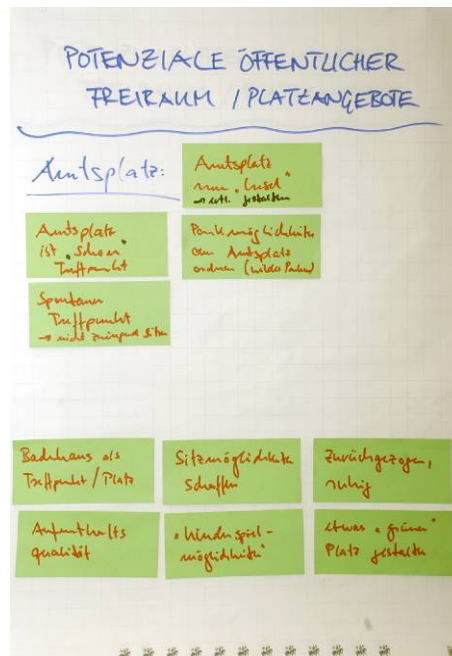 POTENZIALE ÖFFENTLICHER
FREIRAUM / PLATZANGEBOTE
Amtsplatz:
Amtsplatz
nun „Insel"
→ gestalten
Amtsplatz
ist „schon"
Treffpunkt
Parkmöglichkeiten
am Amtsplatz
ordnen (wildes Parken)
Spontaner
Treffpunkt
→ nicht zwingend Sitzen
Badehaus als
Treffpunkt / Platz
Sitzmöglichkeiten
Schaffen
Zurückgezogen,
ruhig
Aufenthalts
qualität
„Kinderspiel-
möglichkeiten"
etwas „grüner"
Platz gestalten